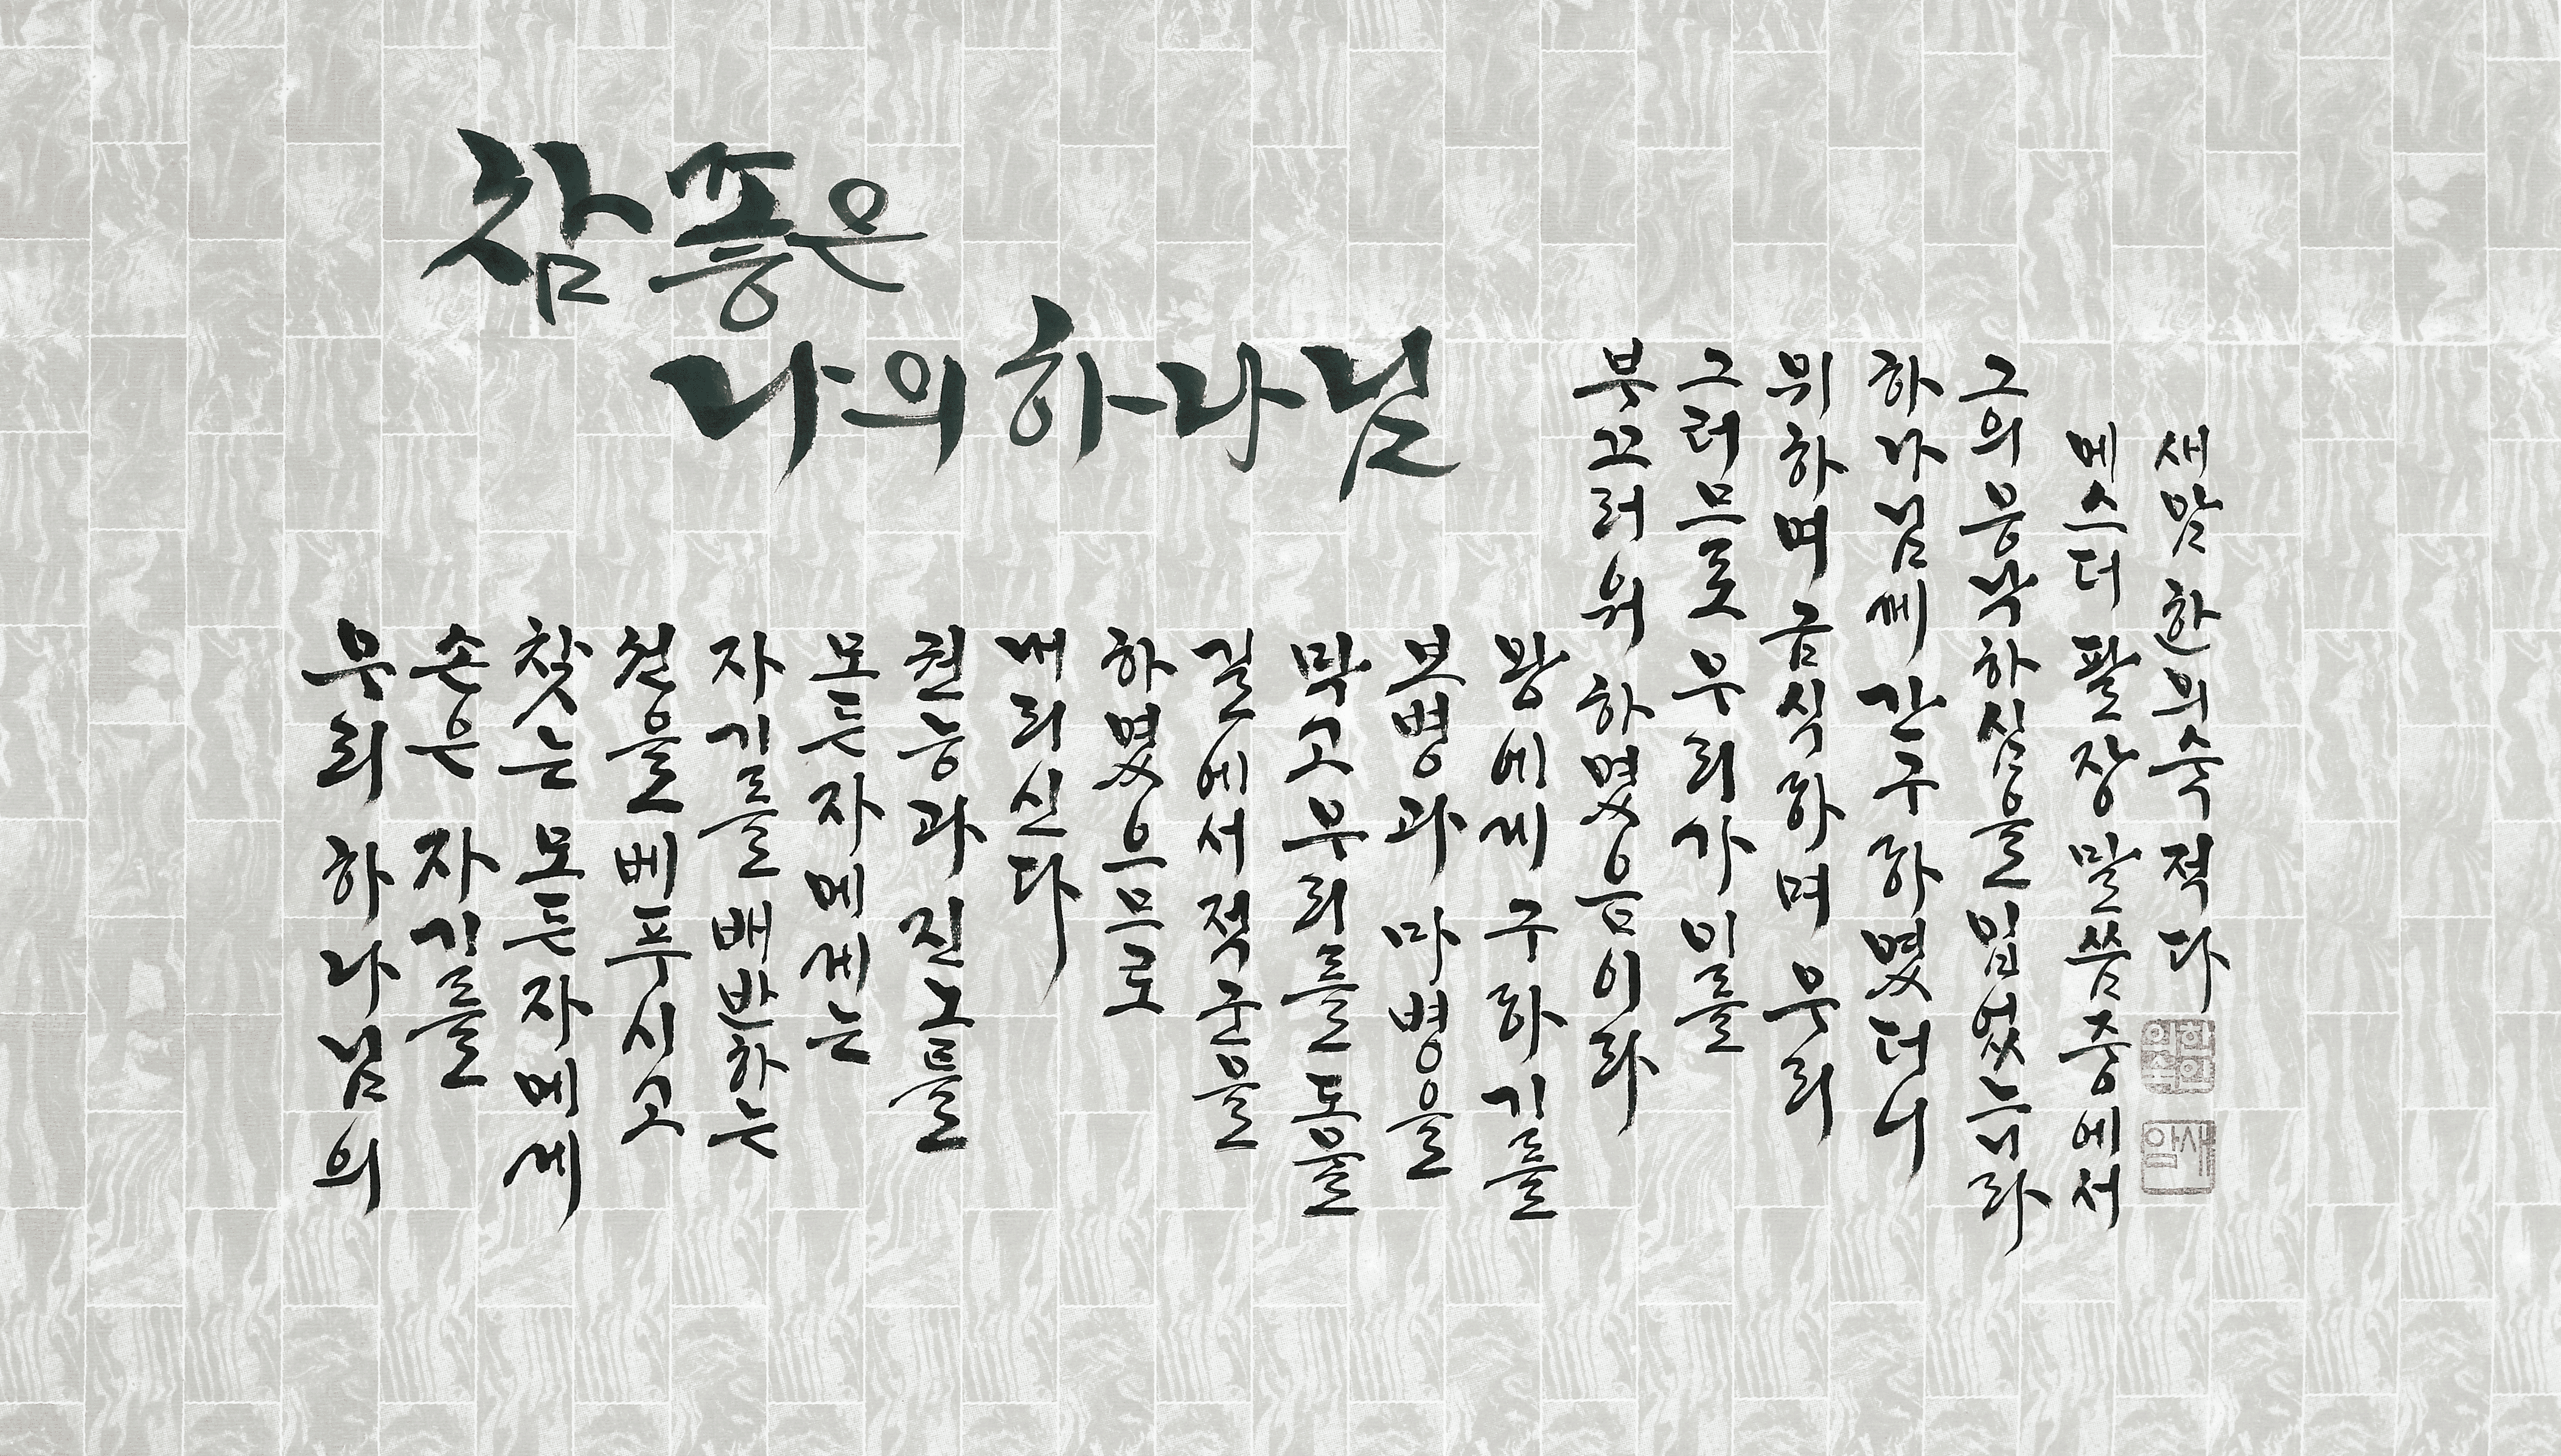 참 좋은
나의 하나님
우리 하나님의
손은 자기를
찾는 모든 자에게
선을 베푸시고
자기를 배반하는
모든 자에게는
권능과 진노를
내리신다
하였으므로
길에서 적군을
막고 우리를 도울
보병과 마병을
왕에게 구하기를
부끄러워 하였음이라
그러므로 우리가 이를
위하며 금식하며 우리
하나님께 간구하였더니
그의 응낙하심을 입었느니라
에스더 팔장 말씀중에서
새맘 한의숙 적다
한인의숙
새맘